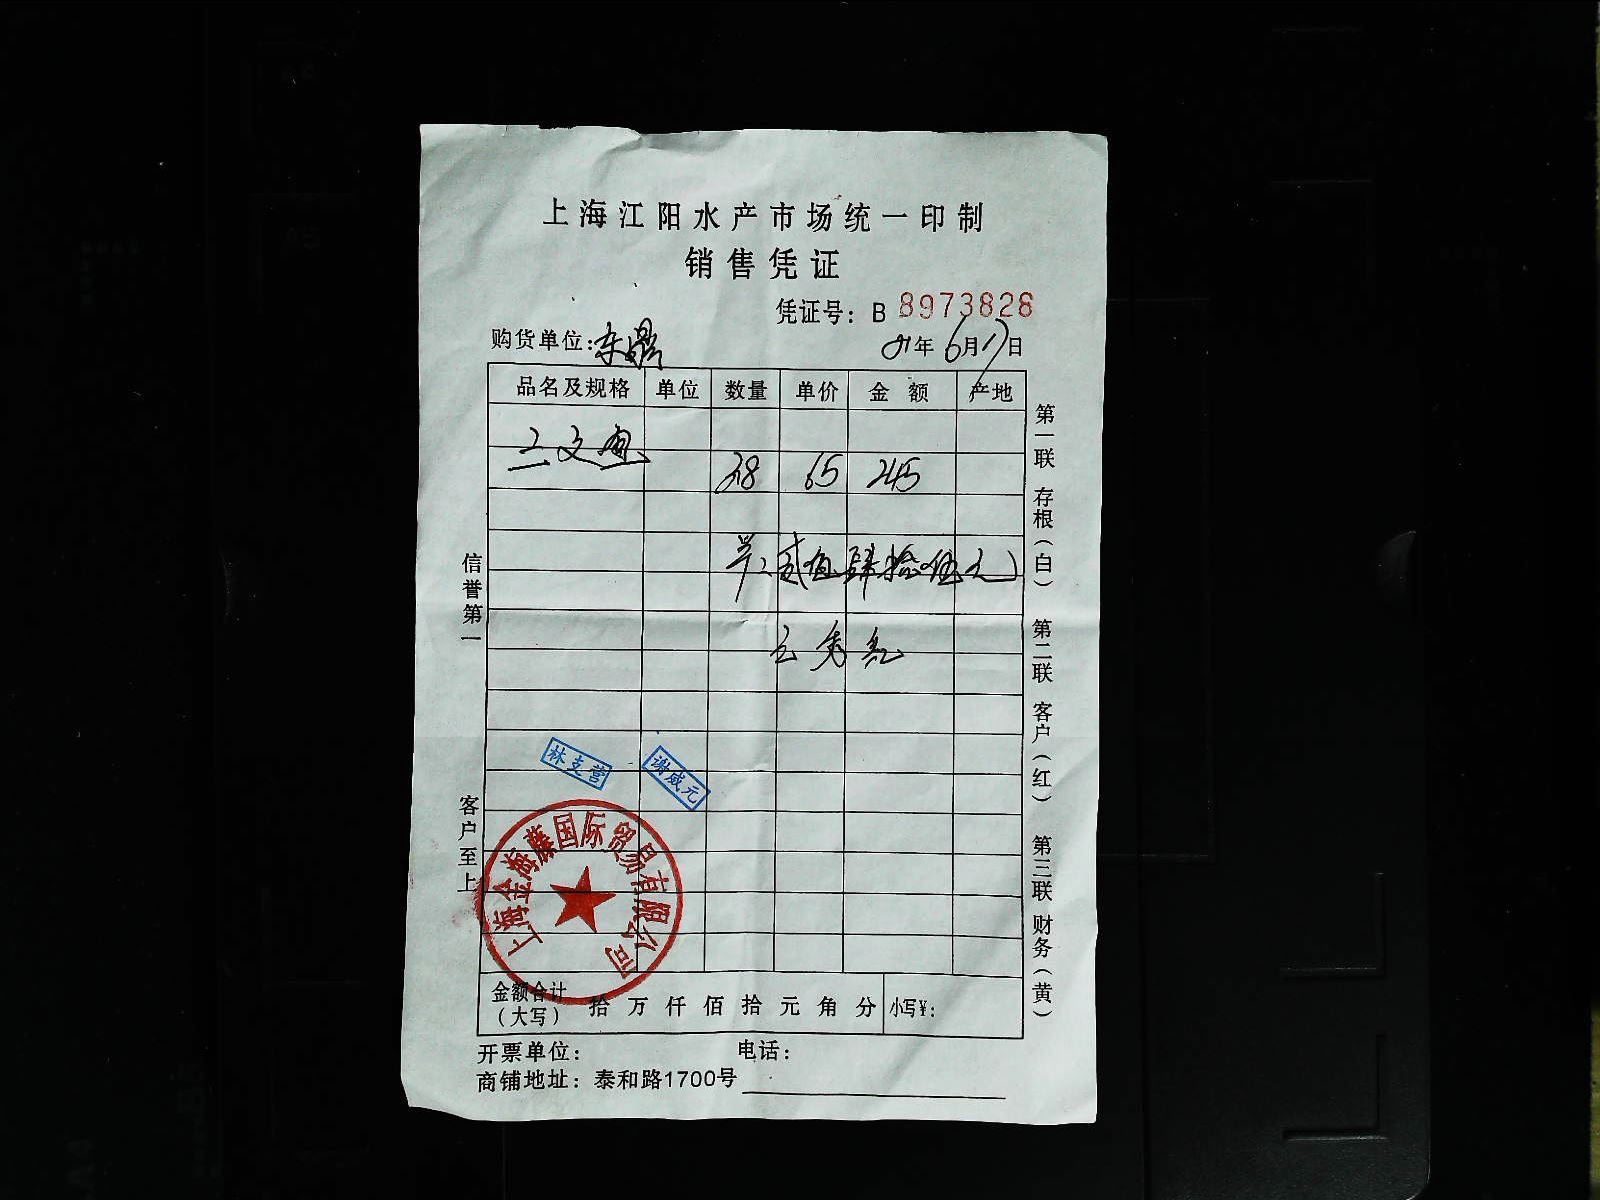 上海江阳水产市场统一印制
销售凭证
凭证号：B 8973828
购货单位：东鼎 年6月17日
品名及规格 单位 数量 单价 金额 产地
三文鱼
38 65 245
贰佰肆拾伍元
林支营 谢威元
上海金海藤国际贸易有限公司
金额合计（大写） 拾 万 仟 佰 拾 元 角 分 小写¥：
开票单位： 电话：
商铺地址：泰和路1700号
信誉第一 客户至上
第一联 存根（白） 第二联 客户（红） 第三联 财务（黄）